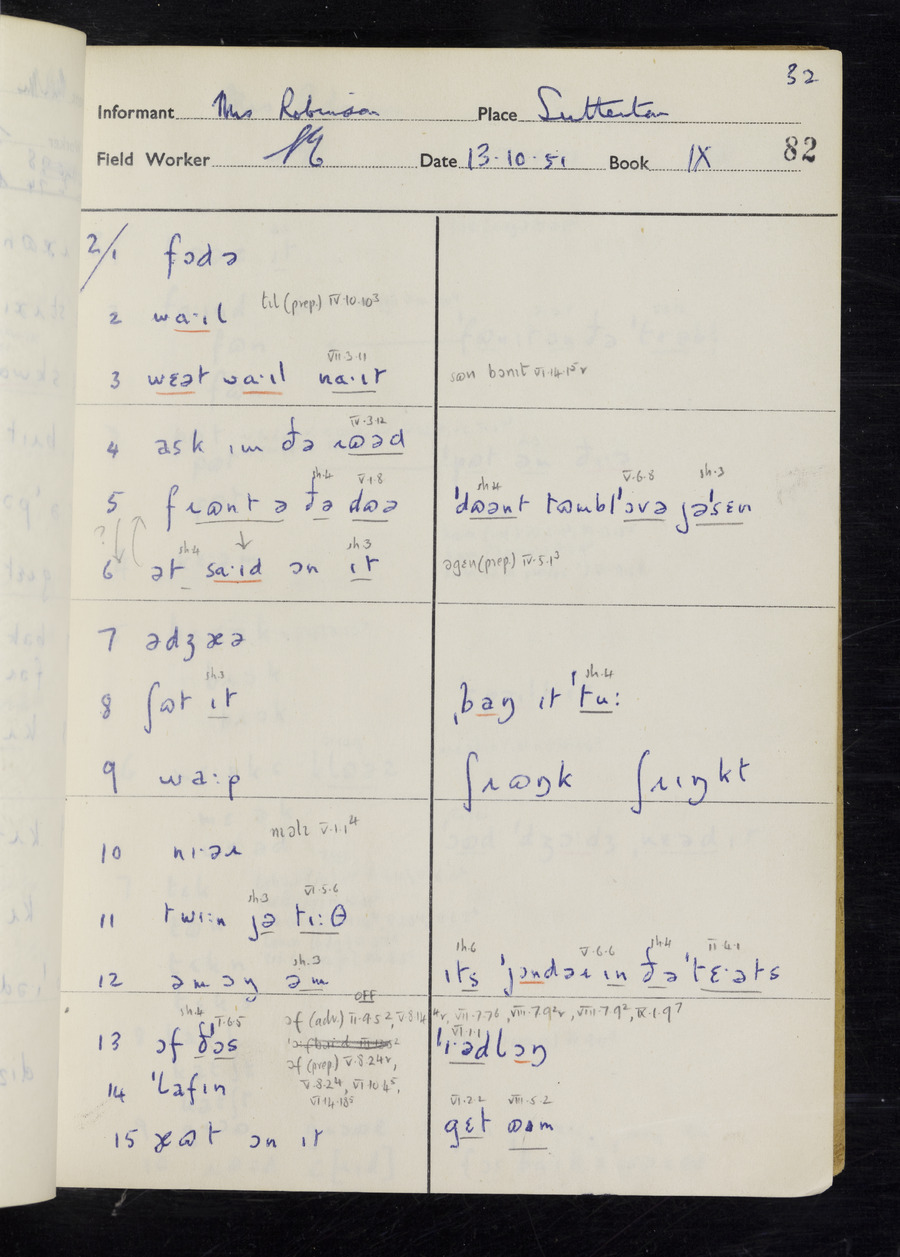 32
Informant Mrs Robinson Place Sutterton
Field Worker Date 13·10·51 Book IX 82
2/1 fɔdə
2 wa·ɪl tɪl (prep.) IV·10·10³
VII·3·11
3 wɛət wa·ɪl na·ɪt sʊn bənɪt VI·14·15ʳ
IV·3·12
4 ask ɪm ðə ɹʊəd
sh.4 V·1·8 sh.4 V·6·8 sh.3
5 fɹʊnt ə ðə dʊə 'dʊənt tʊmbl'ɔvə jə'sɛn
sh.4 sh.3
6 ət sa·ɪd ɔn ɪt əgɛn (prep) IV·5·1³
7 ədʒæə
sh.3 sh.4
8 ʃʊt ɪt ˌbaŋ ɪt 'tu:
9 wa:p ʃɹʊŋk ʃɹɪŋkt
10 nɪ·əɹ nɪəlɪ V·1·1⁴
sh3 VI·5·6
11 twi:n jə ti:θ
sh.3 sh.6 V·6·6 sh.4 II·4·1
12 əmɔŋ əm ɪts 'jɔndəɹ ɪn ðə 'tɛ·əts
OFF
sh.4 I·6·5 ɔf (adv.) II·9·5², V·8·14⁴ʳ, VII·7·7⁶, VIII·7·9²ʳ, VIII·7·9², IX·1·9⁷
13 ɔf ðəs VI·1·1 'ɪ·ədlɔŋ
ɔf (prep) V·8·24ʳ,
14 'lafɪn V·8·2⁴, VI·10·4⁵,
VI·14·18⁵
VI·2·2 VIII·5·2
15 ɔn ɪt gɛt ʊəm